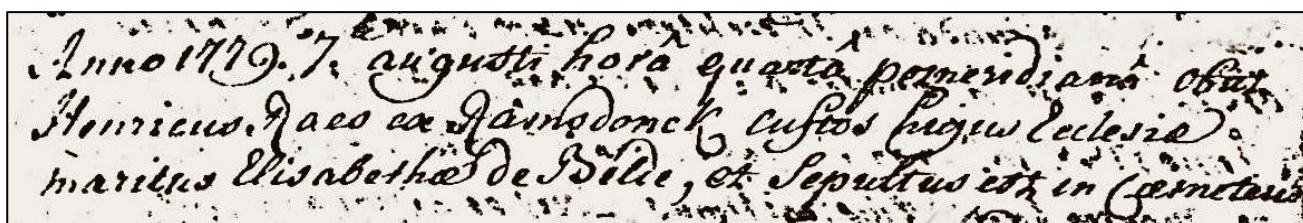 Anno 1779. 7. augusti horâ quartâ pomeridianâ obiit
Henricus Raes ex Ramsdonck custos hujus Ecclesiæ
maritus Elisabethæ de Belde, et Sepultus est in Cœmeterio